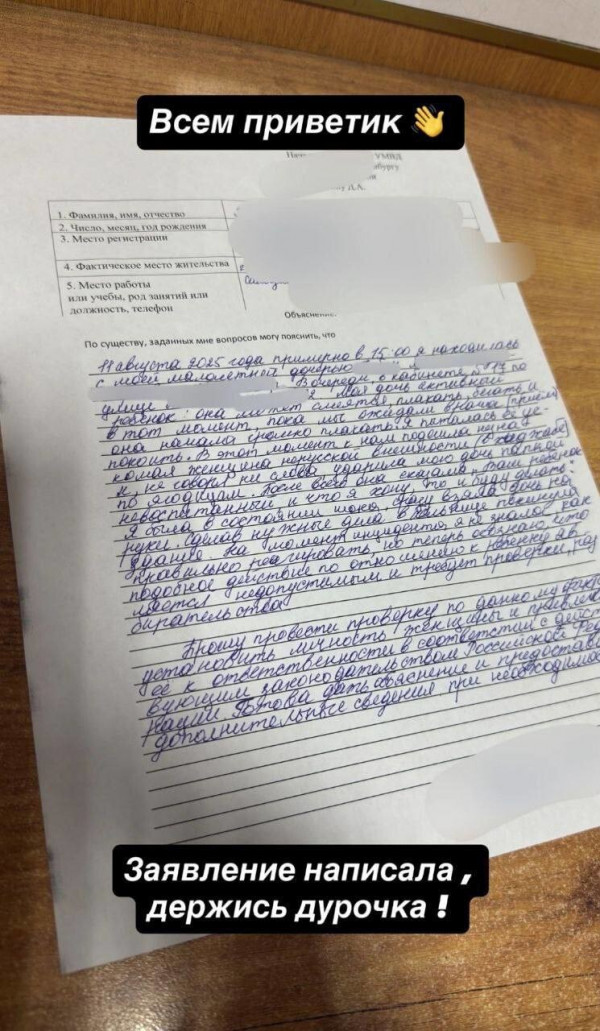 Всем приветик 👋
УМВД
1. Фамилия, имя, отчество
2. Число, месяц, год рождения
3. Место регистрации
4. Фактическое место жительства
5. Место работы
или учебы, род занятий или
должность, телефон
По существу, заданных мне вопросов могу пояснить, что
11 августа 2025 года примерно в 15:00 я находилась
с моей малолетней дочерью
В очереди, в кабинете №17 по
улице Моя дочь активный
ребенок: она может смеяться, плакать, бегать и
в тот момент, пока мы ожидали врача (прием)
она начала громко плакать. Я пыталась её ус-
покоить. В этот момент к нам подошла незна-
комая женщина нерусской внешности (в хиджабе)
и, не говоря ни слова ударила мою дочь папкой
по ягодицам. После всего она сказала, ребенок
невоспитанный и что я хочу, то и буду делать!
Я была в состоянии шока, сразу взяла дочь на
руки. Сделав нужные дела в покинула
здание. На момент инцидента, я не знала, как
правильно реагировать, но теперь осознаю, что
подобное действие по отношению к ребенку яв-
ляется недопустимым и требует проверки, раз
бирательства
Прошу провести проверку по данному факту
установить личность женщины и привлечь
её к ответственности в соответствии с дейст
вующим законодательством Российской Фед
рации. Готова дать объяснение и предостав
дополнительные сведения при необходимос
Заявление написала ,
держись дурочка !